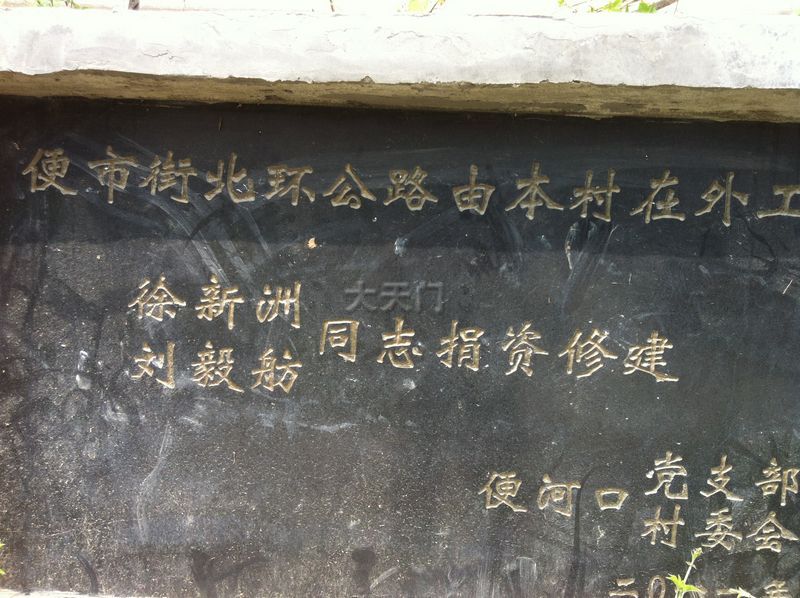 便市街北环公路由本村在外工
徐新洲
刘毅舫
同志捐资修建
大天门
便河口
党支部
村委会
二〇一年